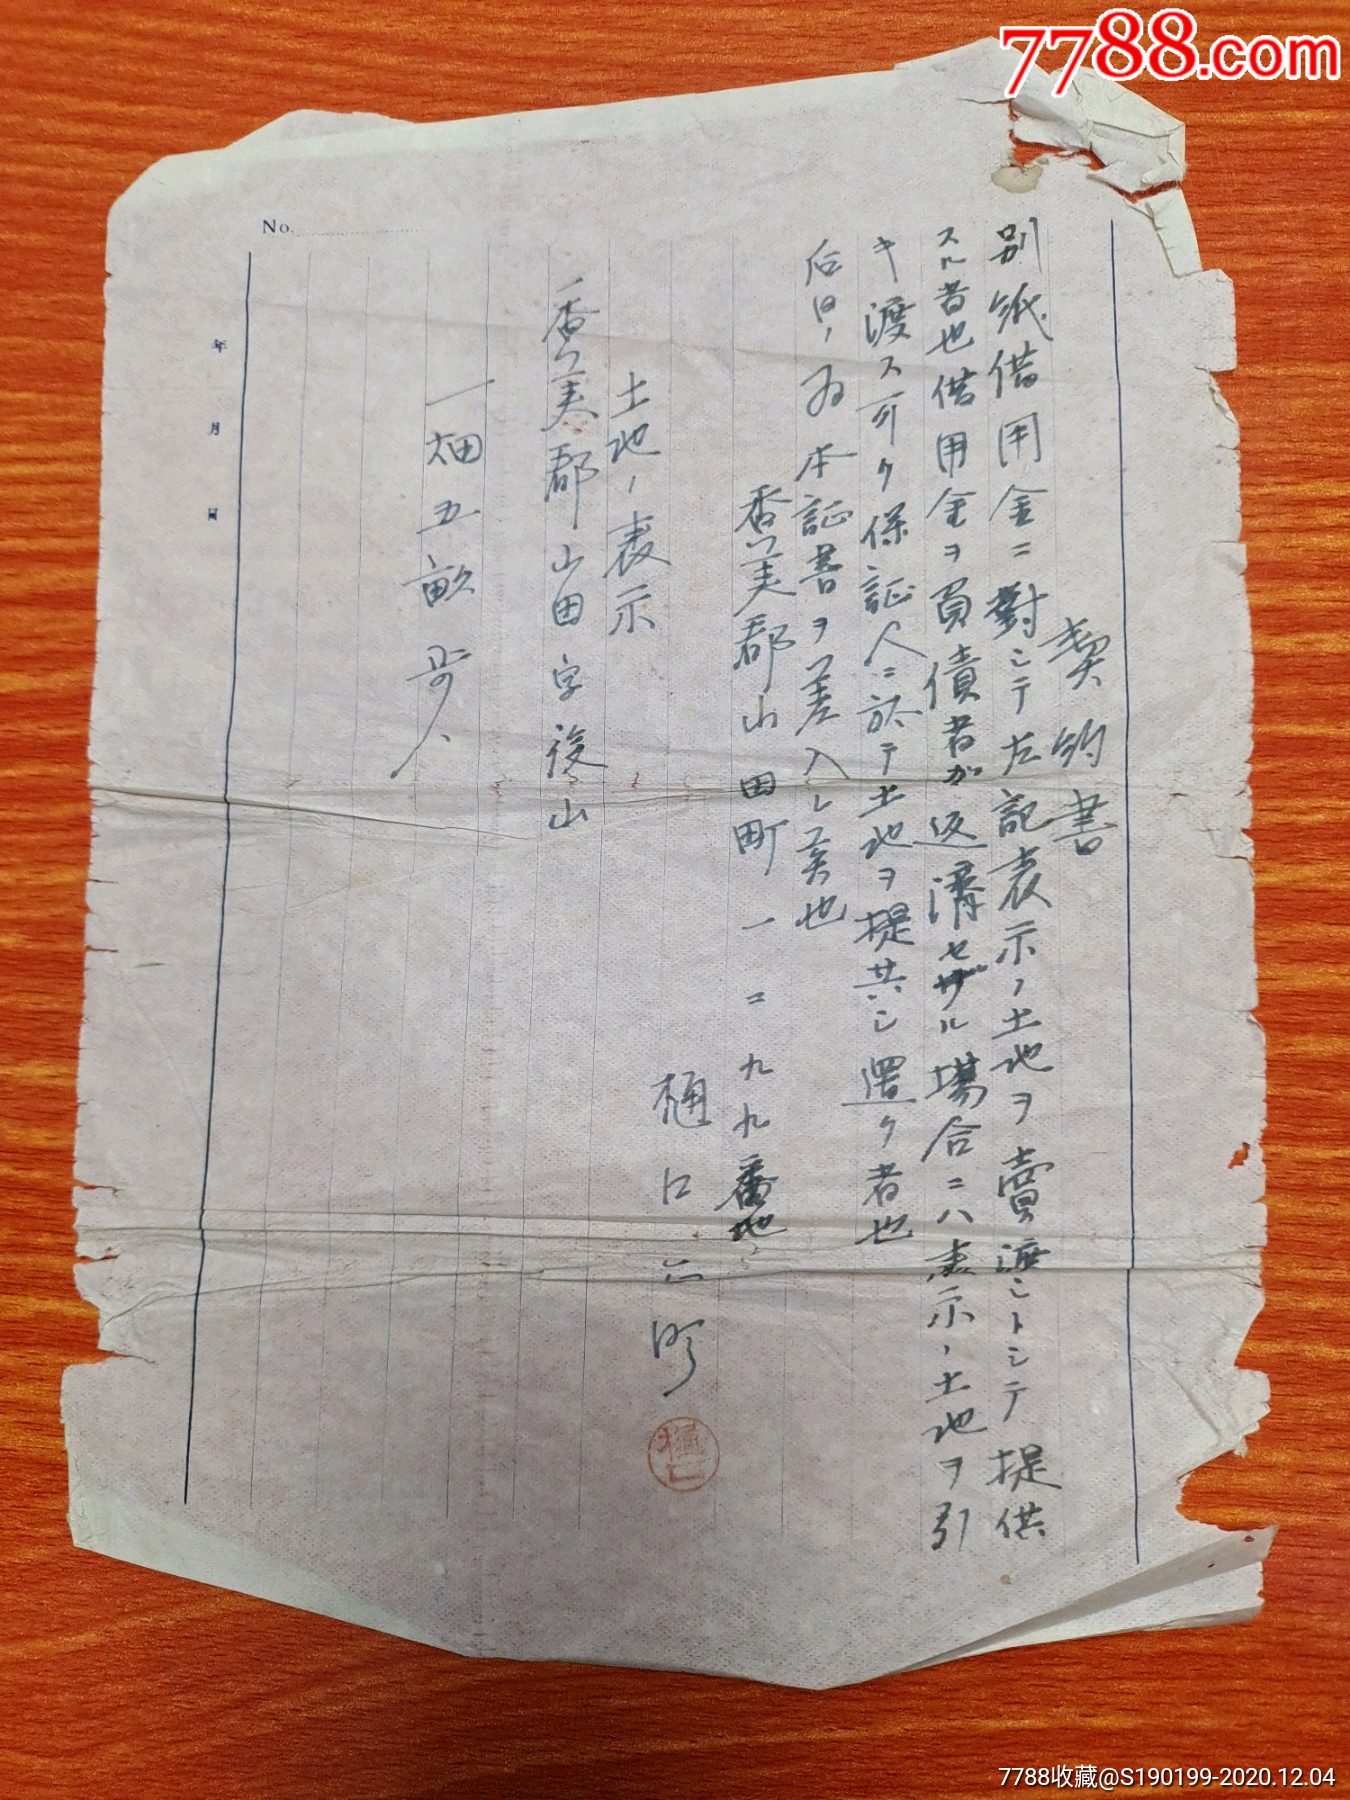 7788.com
No.
契約書
別紙借用金ニ對シテ左記表示ノ土地ヲ賣渡シトシテ提供
スル者也借用金ヲ負債者ガ返済セザル場合ニハ表示ノ土地ヲ引
キ渡ス可ク保証人ニ於テ土地ヲ提共シ置ク者也
后日ノ為本証書ヲ差入レ候也
香美郡山田町一二九九番地
樋口
土地ノ表示
香美郡山田字後山
一畑五畝歩
年月日
7788收藏@S190199-2020.12.04